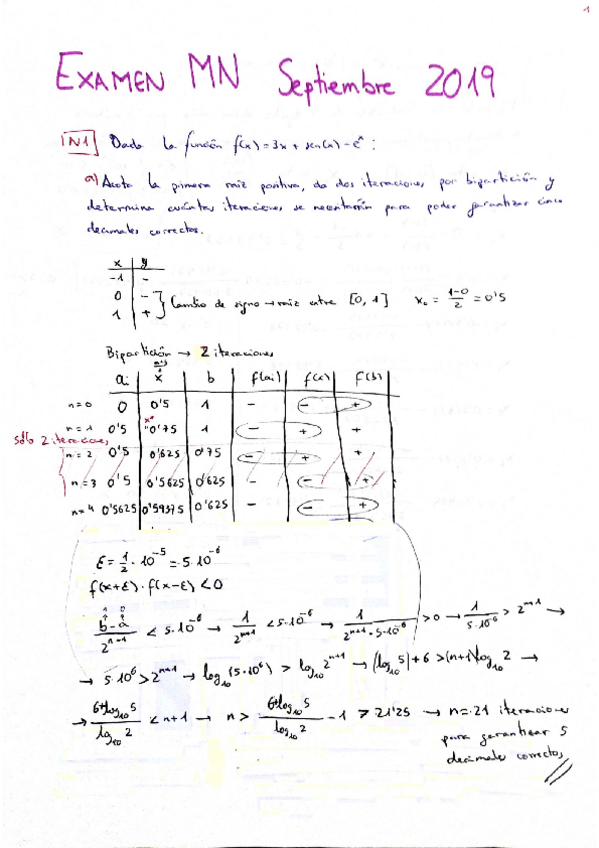 1
EXAMEN MN Septiembre 2019
IN1 Dada la función f(x)=3x+sen(x)-eˣ:
a) Acota la primera raíz positiva, da dos iteraciones por bipartición y
determina cuántas iteraciones se necesitarán para poder garantizar cinco
decimales correctos.
x y
-1 -
0 -
1 +
Cambio de signo → raíz entre [0, 1] x₀ = 1-0/2 = 0'5
Bipartición → 2 iteraciones
aᵢ x b f(ai) f(x) f(b)
n=0 0 0'5 1 - - +
n=1 0'5 0'75 1 - + +
sólo 2 iteraciones
n=2 0'5 0'625 0'75 - + +
n=3 0'5 0'5625 0'625 - - +
n=4 0'5625 0'59375 0'625 - - +
ε = 1/2 · 10⁻⁵ = 5·10⁻⁶
f(x+ε)·f(x-ε) < 0
1 0
b-a/2ⁿ⁺¹ < 5·10⁻⁶ → 1/2ⁿ⁺¹ < 5·10⁻⁶ → 1/2ⁿ⁺¹·5·10⁻⁶ > 0 → 1/5·10⁻⁶ > 2ⁿ⁺¹ →
→ 5·10⁶ > 2ⁿ⁺¹ → log₁₀(5·10⁶) > log₁₀ 2ⁿ⁺¹ → (log₁₀ 5)+6 > (n+1)log₁₀ 2 →
→ 6+log₁₀ 5/log₁₀ 2 < n+1 → n > 6+log₁₀ 5/log₁₀ 2 - 1 > 21'25 → n=21 iteraciones
para garantizar 5
decimales correctos